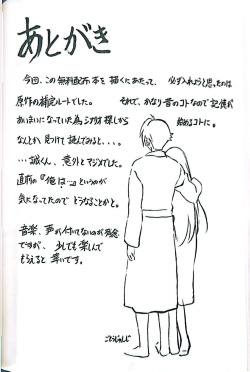 あとがき
今回、この無料配布本を描くにあたって、必ず入れようと思ったのは
原作の補定ルートでした。それで、かなり昔のコトなので記憶が
あいまいになっていた為シナリオ探しから始めるコトに。
なんとか見つけて読んでみると・・・。
…誠くん、意外とマジメでした。
直前の『俺は…』というのが
気になってたので どうなることかと。
音楽、声が付いてないのが残念
ですが、少しでも楽しんで
もらえると幸いです。
ごとうじゅんじ